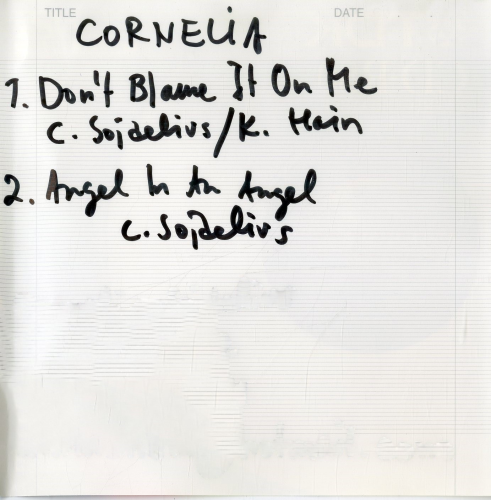 TITLE DATE
CORNELIA
1. Don't Blame It On Me
C. Sojdelius/K. Hain
2. Angel In An Angel
C. Sojdelius